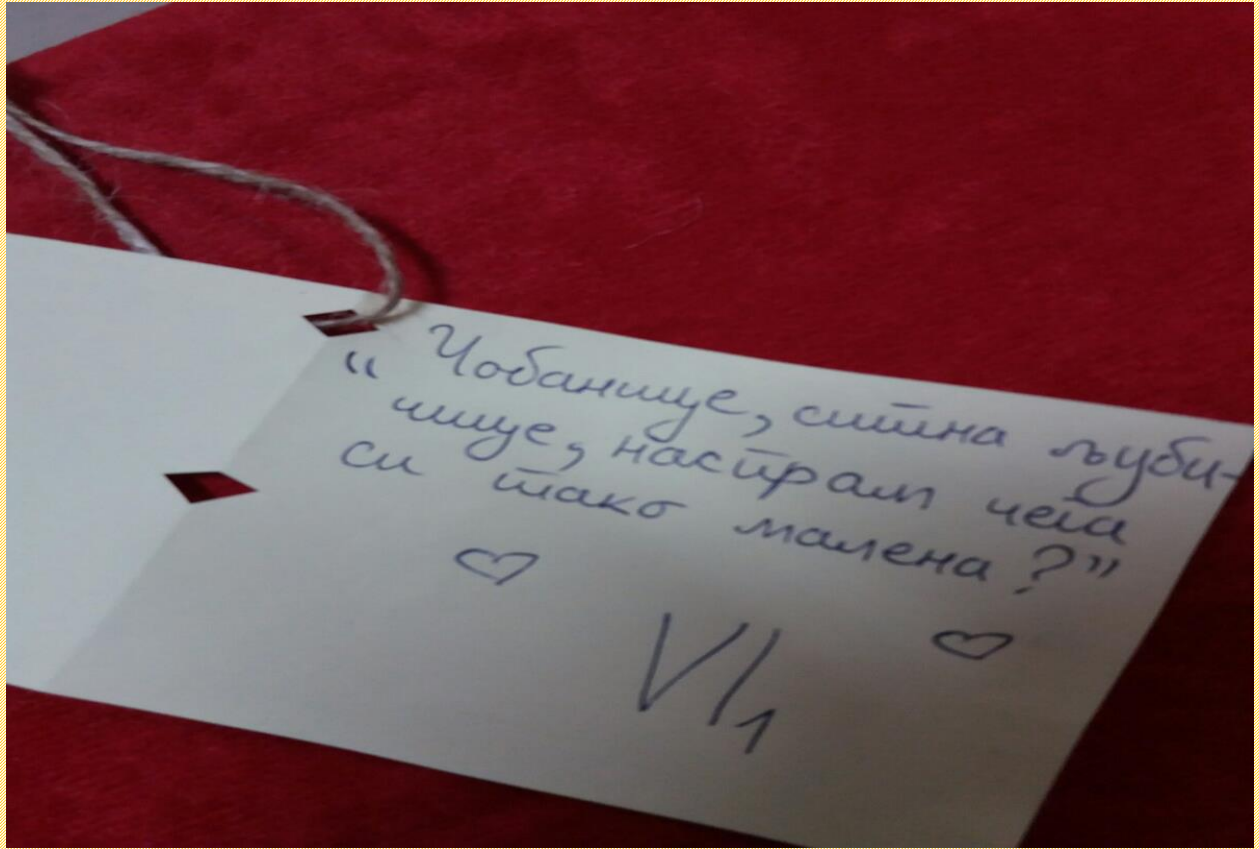 “ Чобанице, ситна љуби-
чице, наспрам чега
си тако малена ? ”
VI₁